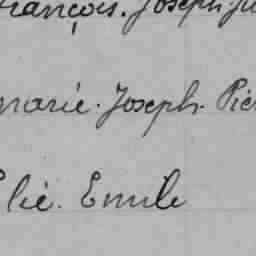 François. Joseph. Ju
marie. Joseph. Pie
Elie. Emile